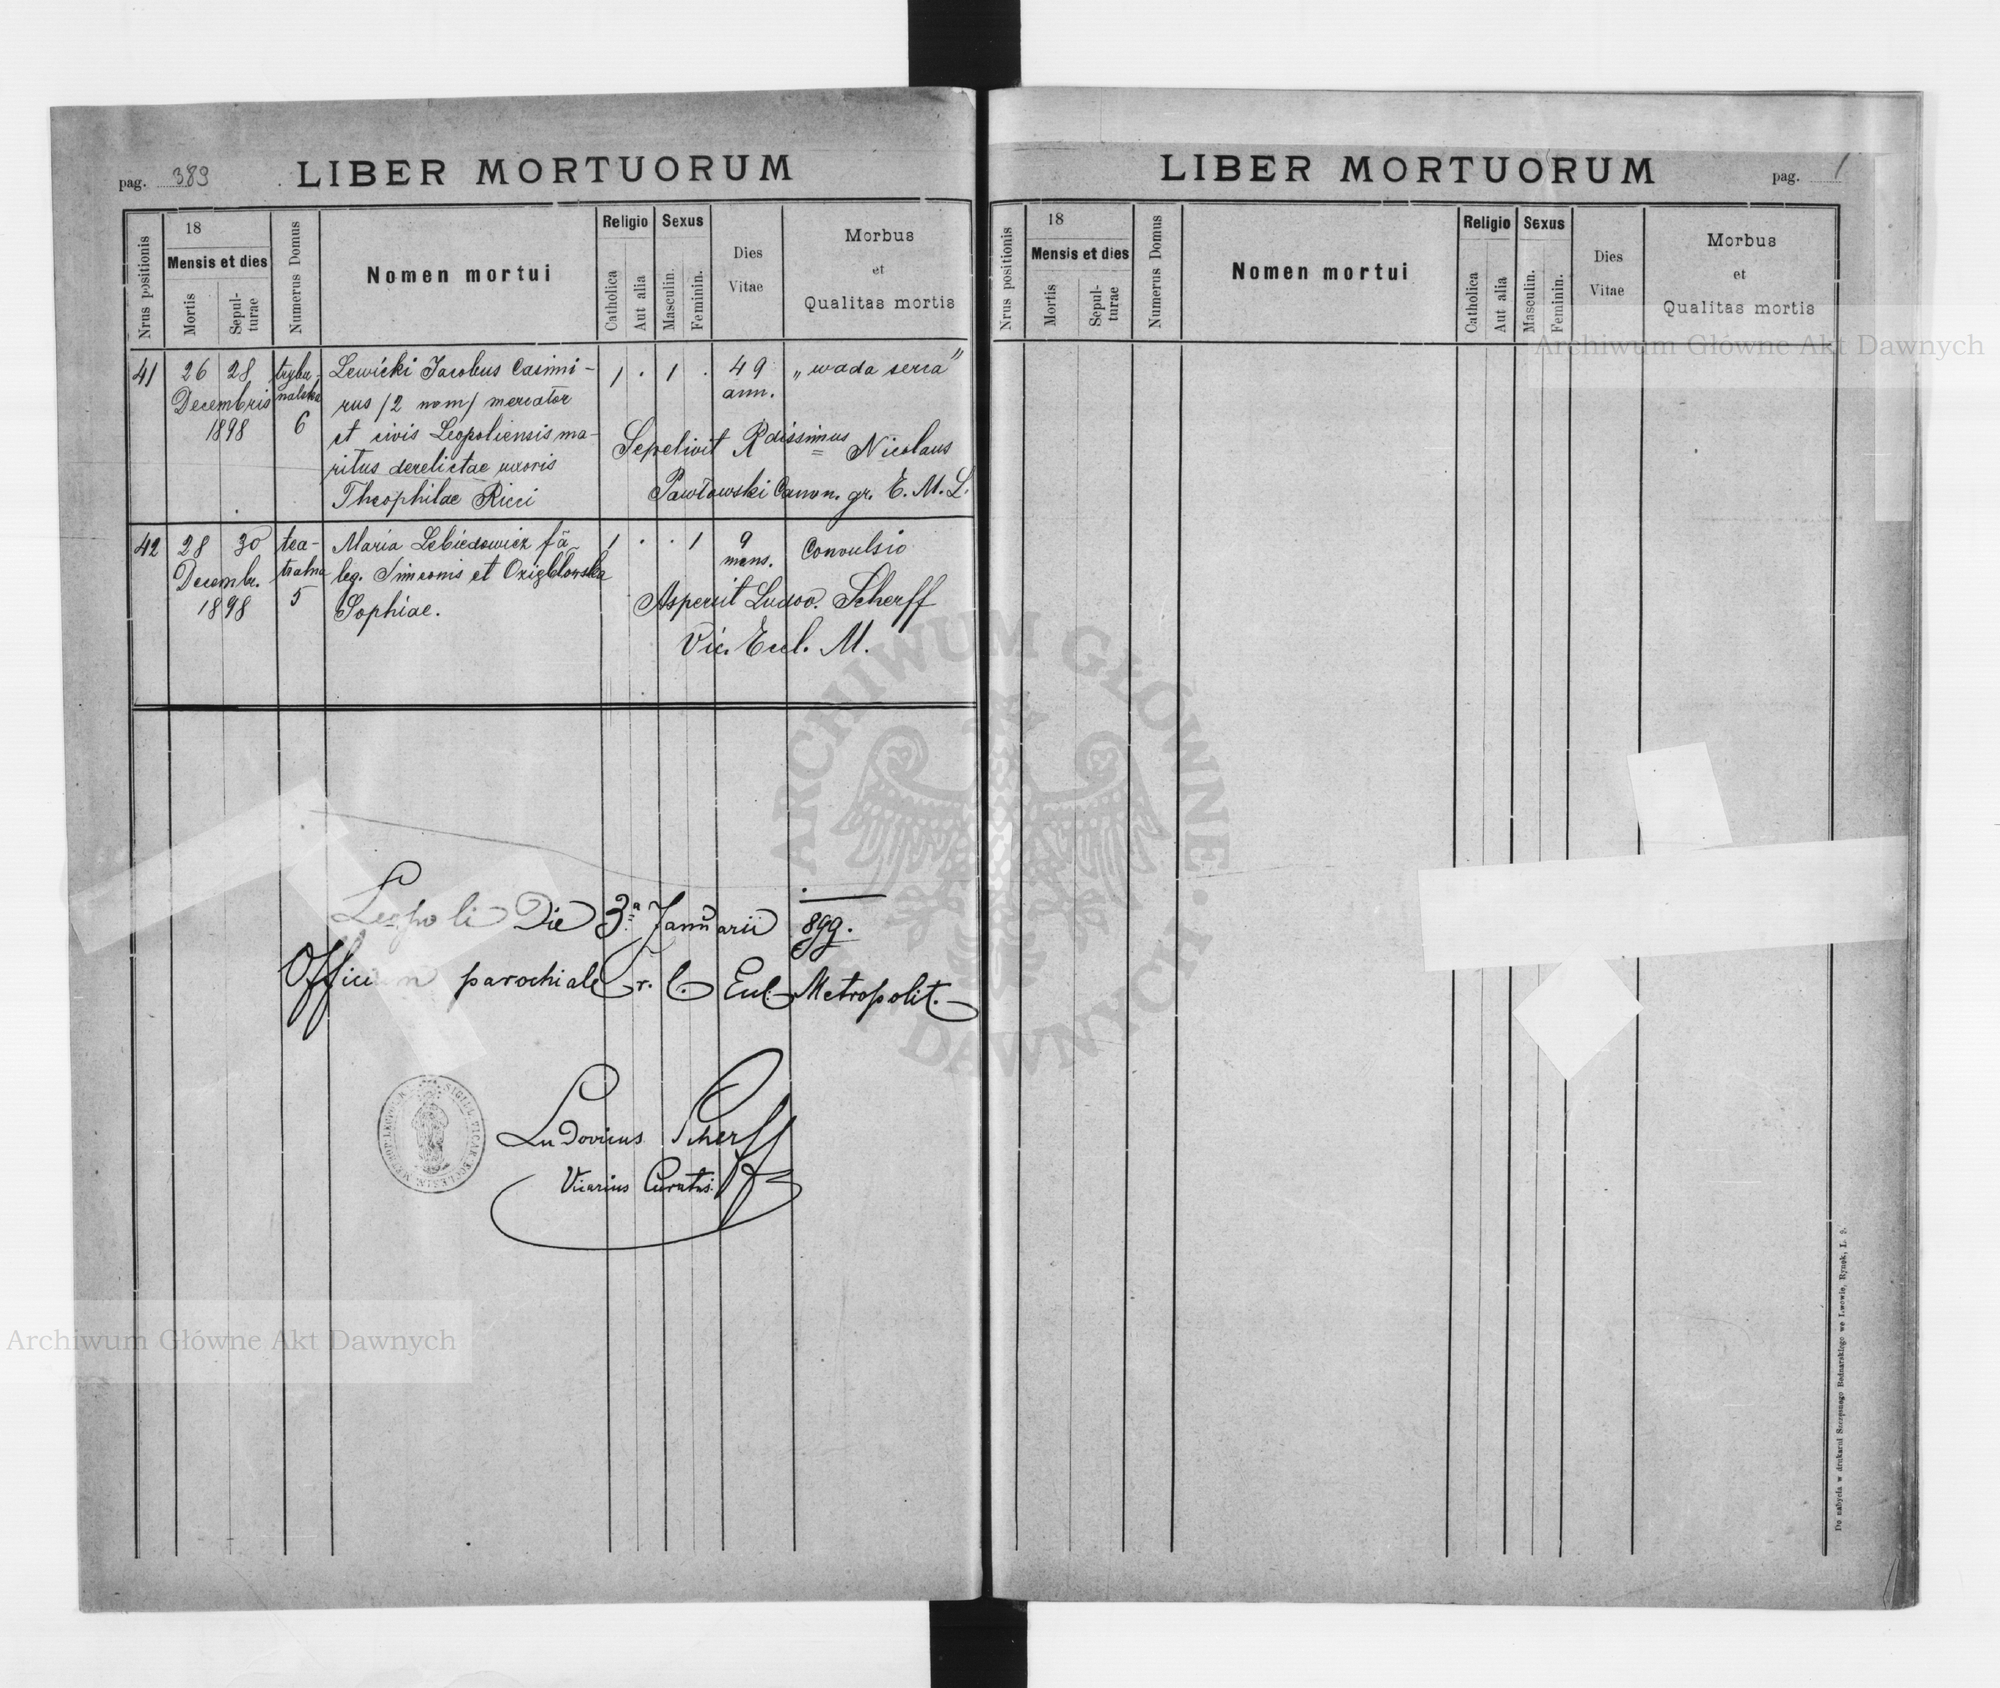 pag. 389
LIBER MORTUORUM
Nrus positionis
18
Mensis et dies
Mortis
Sepul-
turae
Numerus Domus
Nomen mortui
Religio
Catholica
Aut alia
Sexus
Masculin.
Feminin.
Dies
Vitae
Morbus
et
Qualitas mortis
41
26 28
Decembris
1898
trybu-
nalska
6
Lewicki Jacobus Casimi-
rus /2 nom/ mercator
et civis Leopoliensis ma-
ritus derelictae uxoris
Theophilae Ricci
1 . 1 .
49
ann.
„wada serca"
Sepelivit Rdissimus Nicolaus
Pawłowski Canon. gr. E. M. L.
42
28 30
Decembr.
1898
tea-
tralna
5
Maria Lebiedowicz fa
leg. Simeonis et
Sophiae.
1 . . 1
9
mens.
Convulsio
Aspersit Ludov. Scherff
Vic. Eccl. M.
Leopoli Die 3a Januarii 899.
Officium parochiale r. l. Eccl. Metropolit.
Ludovicus Scherff
Vicarius Curatus.
LIBER MORTUORUM
pag. 1
Nrus positionis
18
Mensis et dies
Mortis
Sepul-
turae
Numerus Domus
Nomen mortui
Religio
Catholica
Aut alia
Sexus
Masculin.
Feminin.
Dies
Vitae
Morbus
et
Qualitas mortis
Do nabycia w drukarni Szczęsnego Bednarskiego we Lwowie, Rynek, L. 9.
Archiwum Główne Akt Dawnych
Archiwum Główne Akt Dawnych
ARCHIWUM GŁÓWNE AKT DAWNYCH